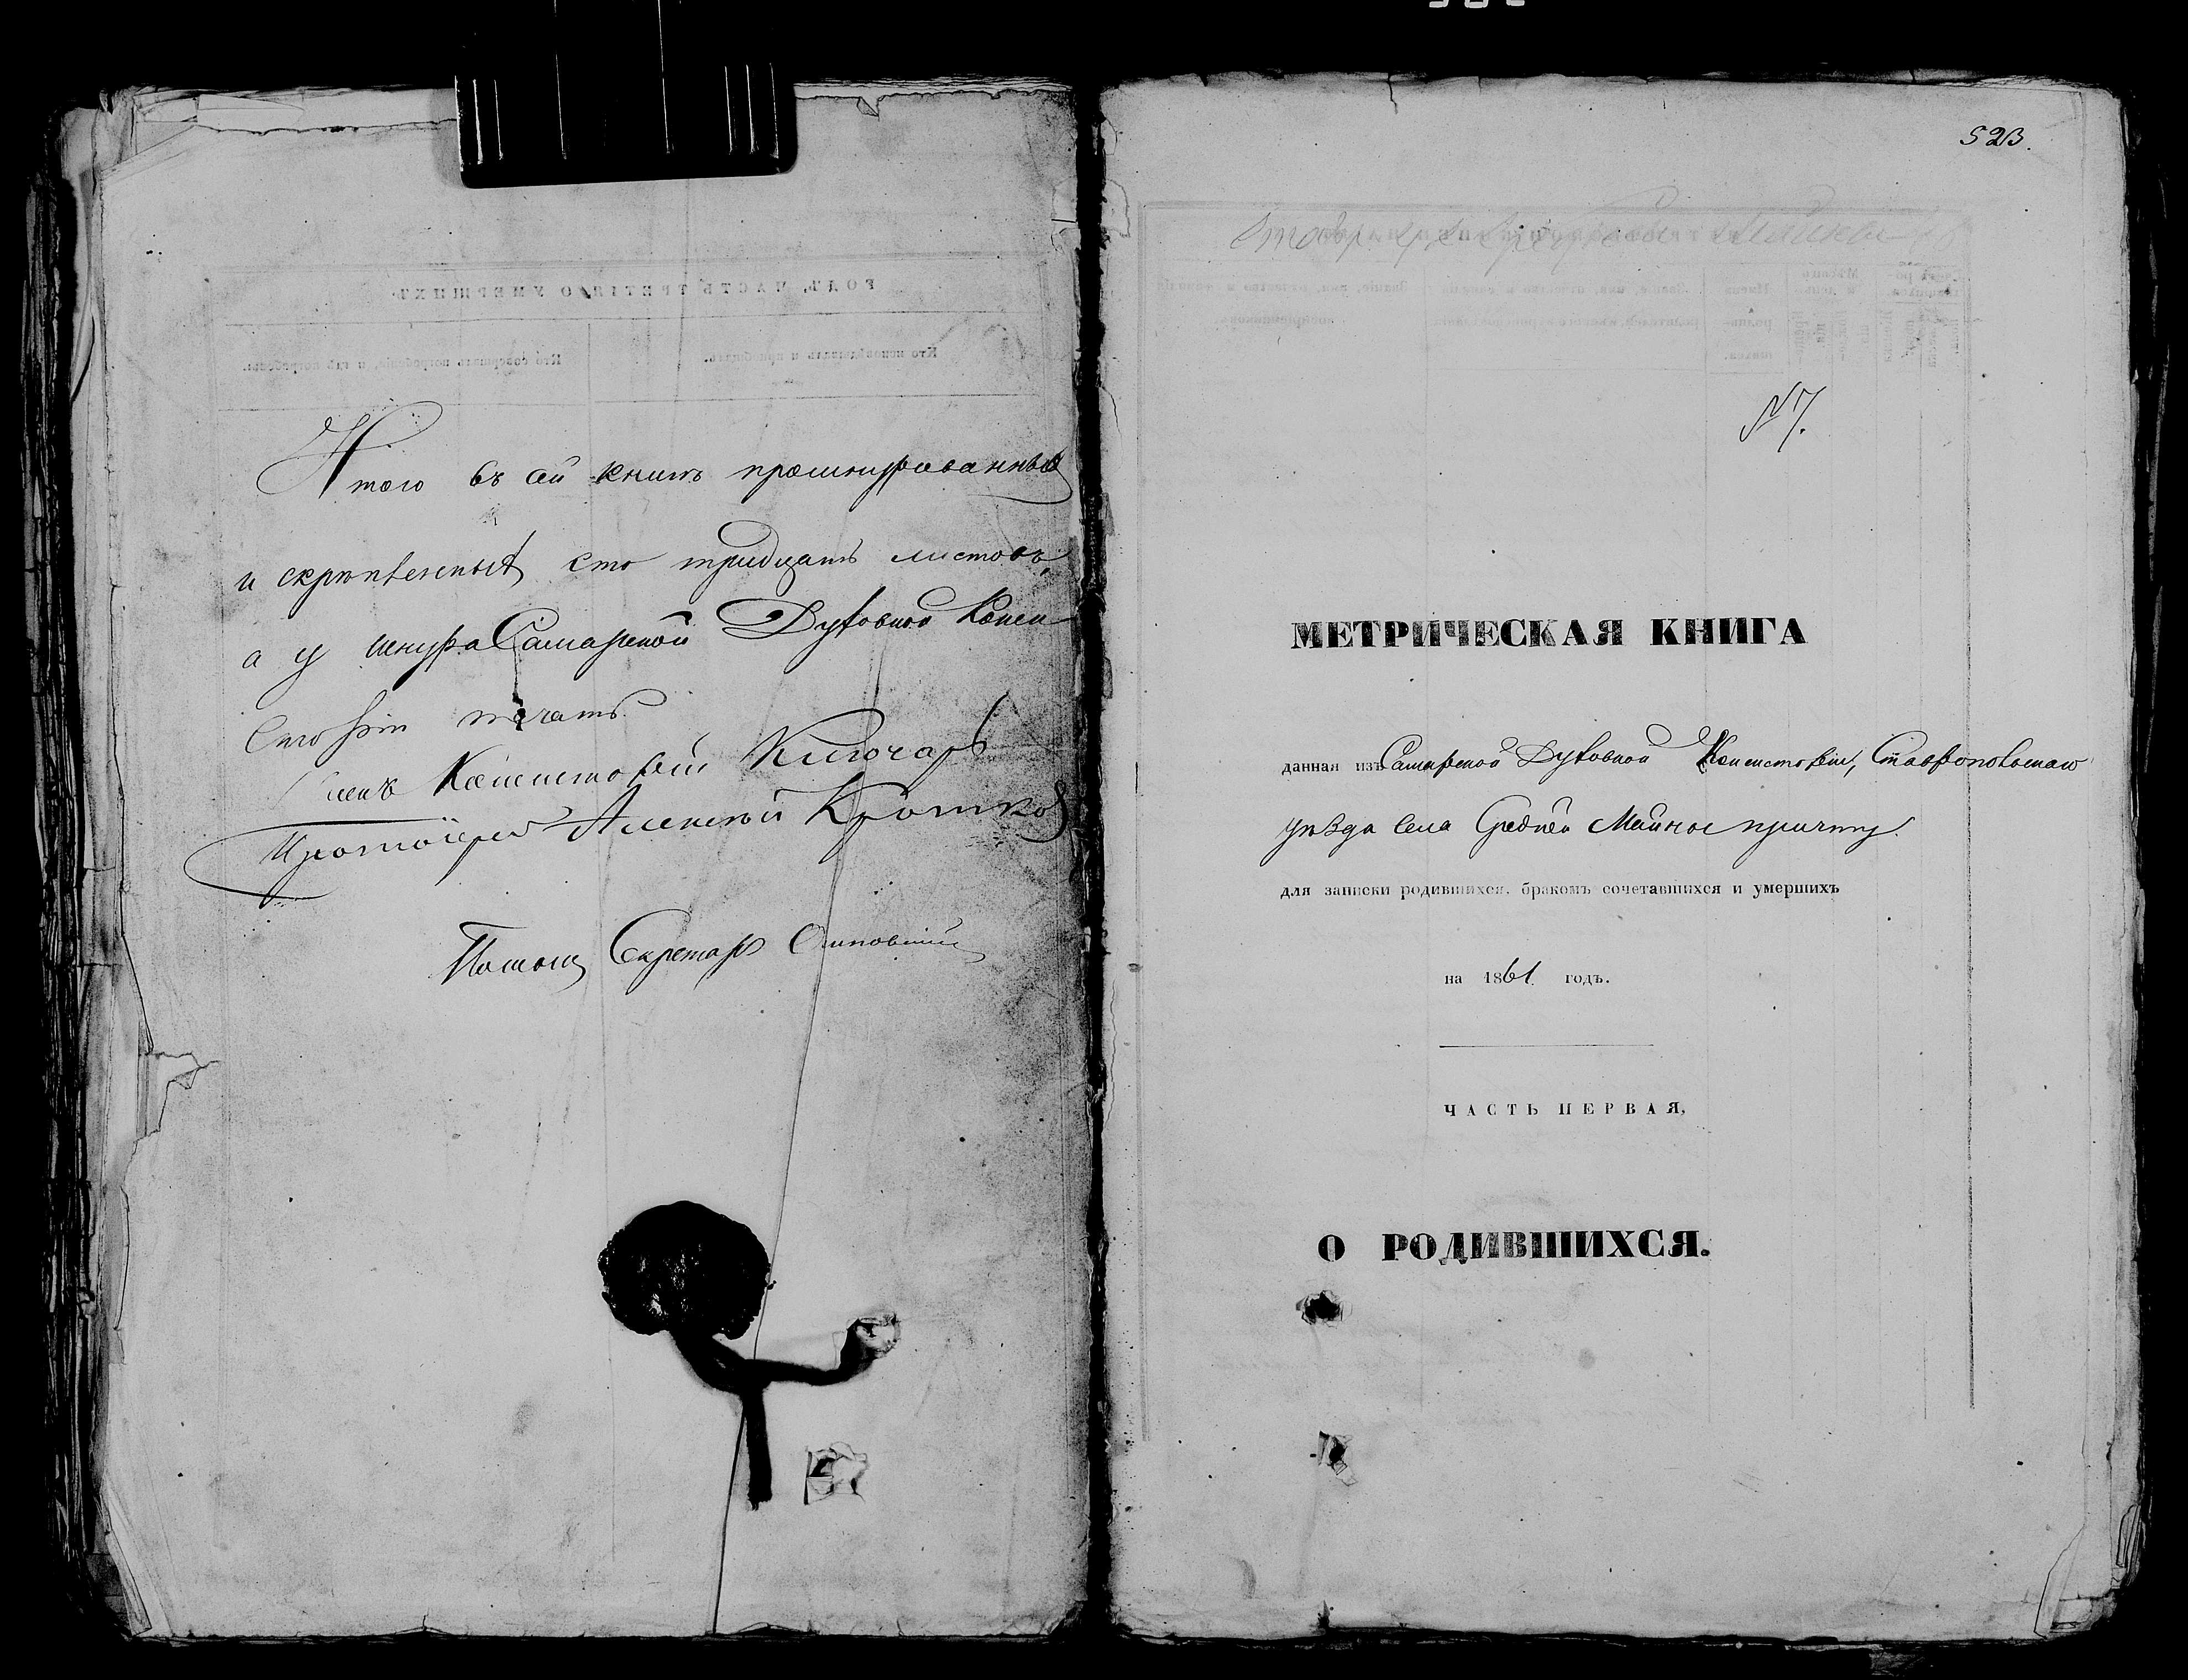 Итого въ сей книгѣ прошнурованныхъ
и скрѣпленныхъ сто тридцать листовъ,
а у шнура Самарской Духовной Конси
сторіи печать.
Членъ Консисторіи Ключарь
Протоіерей Алексей Кротков
Помощ Секретаря Осиповский
523.
№ 7.
МЕТРИЧЕСКАЯ КНИГА
данная изъ Самарской Духовной Консисторіи, Ставропольскаго
уѣзда села Средней Майны причту.
для записки родившихся, бракомъ сочетавшихся и умершихъ
на 1861 годъ.
ЧАСТЬ ПЕРВАЯ,
О РОДИВШИХСЯ.